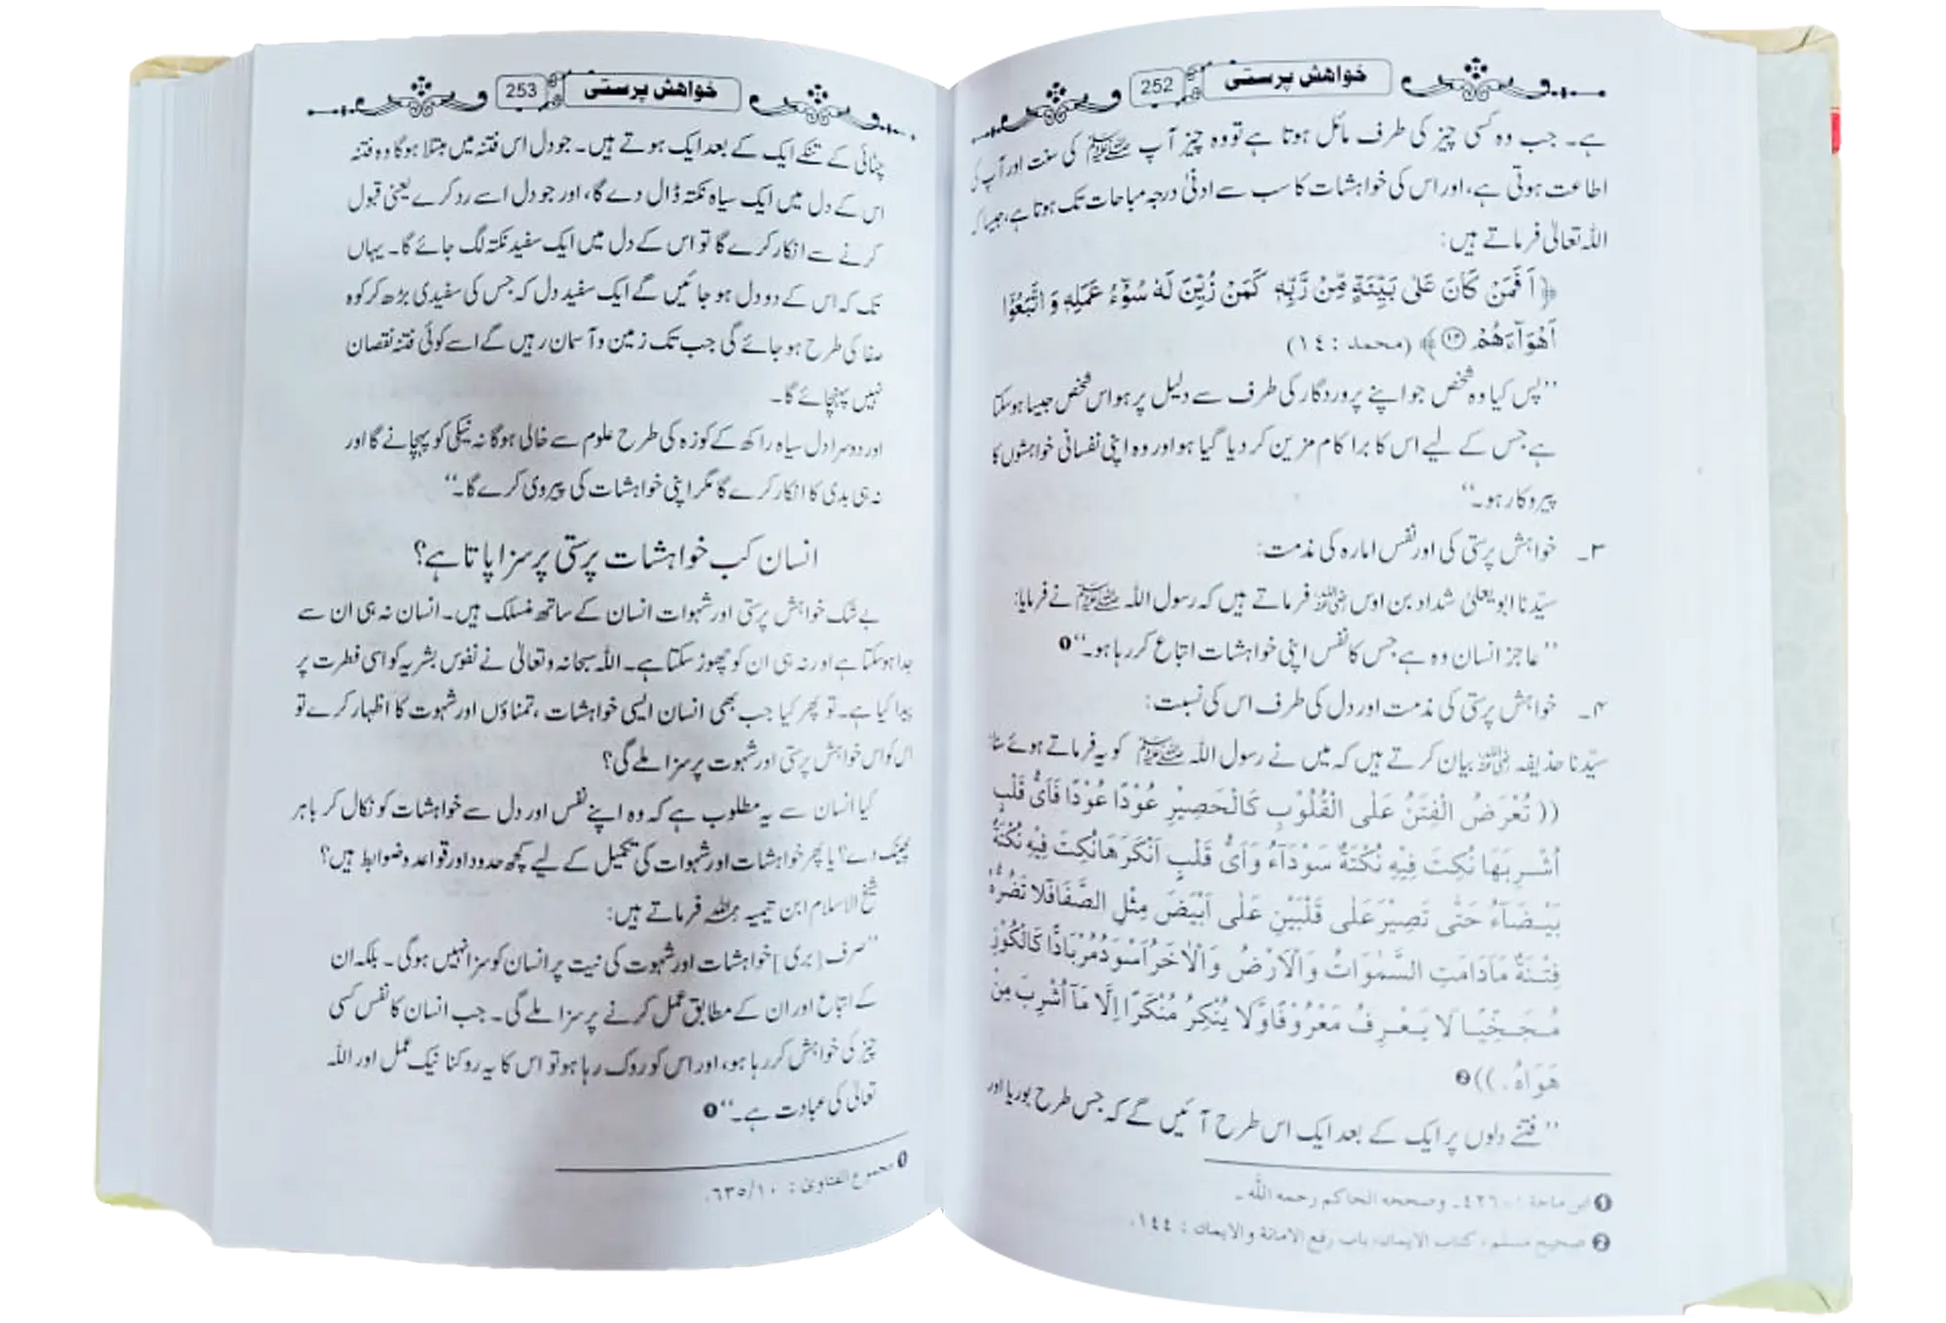 خواهش پرستی 252
ہے۔ جب وہ کسی چیز کی طرف مائل ہوتا ہے تو وہ چیز آپ ﷺ کی سنت اور آپ کی
اطاعت ہوتی ہے، اور اس کی خواہشات کا سب سے ادنیٰ درجہ مباحات تک ہوتا ہے، جیسا کہ
اللہ تعالیٰ فرماتے ہیں:
﴿اَفَمَنْ كَانَ عَلٰى بَيِّنَةٍ مِّنْ رَّبِّهٖ كَمَنْ زُيِّنَ لَهٗ سُوْٓءُ عَمَلِهٖ وَ اتَّبَعُوْٓا
اَهْوَآءَهُمْ ۝۱۴﴾ (محمد : ١٤)
’’پس کیا وہ شخص جو اپنے پروردگار کی طرف سے دلیل پر ہو اس شخص جیسا ہو سکتا
ہے جس کے لیے اس کا برا کام مزین کر دیا گیا ہو اور وہ اپنی نفسانی خواہشوں کا
پیروکار ہو۔‘‘
۳۔ خواہش پرستی کی اور نفس امارہ کی مذمت:
سیّدنا ابو یعلیٰ شداد بن اوس رضی اللہ عنہ فرماتے ہیں کہ رسول اللہ ﷺ نے فرمایا:
’’عاجز انسان وہ ہے جس کا نفس اپنی خواہشات اتباع کر رہا ہو۔‘‘❶
۴۔ خواہش پرستی کی مذمت اور دل کی طرف اس کی نسبت:
سیّدنا حذیفہ رضی اللہ عنہ بیان کرتے ہیں کہ میں نے رسول اللہ ﷺ کو یہ فرماتے ہوئے سنا:
(( تُعْرَضُ الْفِتَنُ عَلَى الْقُلُوْبِ كَالْحَصِيْرِ عُوْدًا عُوْدًا فَاَىُّ قَلْبٍ
اُشْرِبَهَا نُكِتَ فِيْهِ نُكْتَةٌ سَوْدَآءُ وَاَىُّ قَلْبٍ اَنْكَرَهَا نُكِتَ فِيْهِ نُكْتَةٌ
بَيْضَآءُ حَتّٰى تَصِيْرَ عَلٰى قَلْبَيْنِ عَلٰى اَبْيَضَ مِثْلِ الصَّفَا فَلَا تَضُرُّهُ
فِتْنَةٌ مَادَامَتِ السَّمٰوَاتُ وَالْاَرْضُ وَالْاٰخَرُ اَسْوَدُ مُرْبَادًّا كَالْكُوْزِ
مُجَخِّيًا لَا يَعْرِفُ مَعْرُوْفًا وَّلَا يُنْكِرُ مُنْكَرًا اِلَّا مَآ اُشْرِبَ مِنْ
هَوَاهُ . ))❷
’’فتنے دلوں پر ایک کے بعد ایک اس طرح آئیں گے کہ جس طرح بوریا اور
❶ ابن ماجة : ٤٢٦٠۔ وصححه الحاكم رحمه الله ۔
❷ صحيح مسلم، كتاب الايمان، باب رفع الامانة والايمان : ١٤٤.
خواهش پرستی 253
چٹائی کے تنکے ایک کے بعد ایک ہوتے ہیں۔ جو دل اس فتنہ میں مبتلا ہوگا وہ فتنہ
اس کے دل میں ایک سیاہ نکتہ ڈال دے گا، اور جو دل اسے رد کرے یعنی قبول
کرنے سے انکار کرے گا تو اس کے دل میں ایک سفید نکتہ لگ جائے گا۔ یہاں
تک کہ اس کے دو دل ہو جائیں گے ایک سفید دل کہ جس کی سفیدی بڑھ کر کوہ
صفا کی طرح ہو جائے گی جب تک زمین و آسمان رہیں گے اسے کوئی فتنہ نقصان
نہیں پہنچائے گا۔
اور دوسرا دل سیاہ راکھ کے کوزہ کی طرح علوم سے خالی ہوگا نہ نیکی کو پہچانے گا اور
نہ ہی بدی کا انکار کرے گا مگر اپنی خواہشات کی پیروی کرے گا۔‘‘
انسان کب خواہشات پرستی پر سزا پاتا ہے؟
بے شک خواہش پرستی اور شہوات انسان کے ساتھ منسلک ہیں۔ انسان نہ ہی ان سے
جدا ہو سکتا ہے اور نہ ہی ان کو چھوڑ سکتا ہے۔ اللہ سبحانہ وتعالیٰ نے نفوس بشریہ کو اسی فطرت پر
پیدا کیا ہے۔ تو پھر کیا جب بھی انسان ایسی خواہشات ،تمناؤں اور شہوت کا اظہار کرے تو
اس کو اس خواہش پرستی اور شہوت پر سزا ملے گی؟
کیا انسان سے یہ مطلوب ہے کہ وہ اپنے نفس اور دل سے خواہشات کو نکال کر باہر
پھینک دے؟ یا پھر خواہشات اور شہوات کی تکمیل کے لیے کچھ حدود اور قواعد وضوابط ہیں؟
شیخ الاسلام ابن تیمیہ رحمہ اللہ فرماتے ہیں:
’’صرف [بری] خواہشات اور شہوت کی نیت پر انسان کو سزا نہیں ہوگی۔ بلکہ ان
کے اتباع اور ان کے مطابق عمل کرنے پر سزا ملے گی۔ جب انسان کا نفس کسی
چیز کی خواہش کر رہا ہو، اور اس کو روک رہا ہو تو اس کا یہ روکنا نیک عمل اور اللہ
تعالیٰ کی عبادت ہے۔‘‘❶
❶ مجموع الفتاوىٰ : ٦٣٥/١٠.